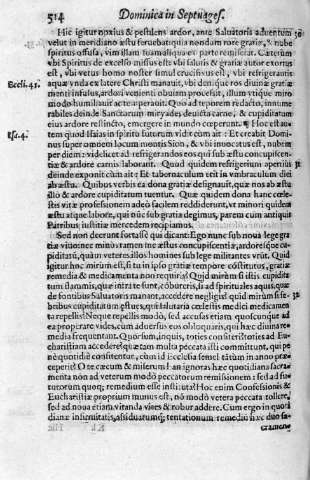 514 Dominica in Septuages.
Hic igitur noxius & pestilens ardor, ante Saluatoris aduentum 30
velut in meridiano æstu feruebat: quia nondum rore gratiæ, & nube
spiritus offusa, vim illam flammasque ex parte remiserat. Cæterùm
vbi Spiritus de excelso missus est: vbi salutis & gratiæ autor exortus
est, vbi vetus homo noster simul crucifixus est, vbi refrigerantis
Eccli.43. aquæ vnda ex latere Christi manauit, vbi denique ros diuinæ gratiæ
menti infusus, ardori venienti obuiam processit, illum vtique miro
modo humiliauit ac temperauit. Quo ad teporem redacto, innume
rabiles deinde Sanctarum myriades, deuicta carne, & cupiditatum
eius ardore restincto, emergere in mundo cœperunt. ¶ Hoc est au-
Esa.4. tem quod Isaias in spiritu futurum vidit cùm ait: Et creabit Domi-
nus super omnem locum montis Sion, & vbi inuocatus est, nubem
per diem: videlicet ad refrigerandos eos qui sub æstu concupiscen-
tiæ & ardore carnis laborant. Quod quidem refrigerium apertiùs 31
deinde exponit cùm ait: Et tabernaculum erit in vmbraculum diei
ab æstu. Quibus verbis ea dona gratiæ designauit, quæ nos ab æstu
illo & ardore cupiditatum tuentur. Quæ quidem dona hanc cœle-
stis vitæ professionem adeò facilem reddiderunt, vt minori quidem
æstu atque labore, qui nunc sub gratia degimus, parem cum antiquis
Patribus iustitiæ mercedem recipiamus.
Sed non deerunt fortasse qui dicant: Ego nunc sub noua lege gra-
tiæ viuo: nec minùs tamen me æstus concupiscentiæ, ardoresque cu-
piditatū, quàm veteres illos homines sub lege militantes vrūt. Quid
igitur hoc mirum est, si tu in ipso gratiæ tempore cōstitutus, gratiæ
remedia & medicamenta non requiris? Quid mirùm si isti cupidita-
tum flammis, quæ intra te sunt, cōbureris, si ad spirituales aquas, quæ
de fontibus Saluatoris manant, accedere negligis? quid mirùm si fe- 32
bribus cupiditatum æstues, qui salutaria cœlestis medici medicamen
ta repellis? Neque repellis modò, sed accusas etiam quoscunque ad
ea properare vides, cùm aduersus eos obloquaris, qui hæc diuina re-
media frequentant. Quorsum, inquis, toties confiteri? toties ad Eu-
charistiam accedere? quæ tam multa peccata isti committunt, qui pe-
ne quotidie confitentur, cùm id Ecclesia semel tātùm in anno præ-
ceperit? O te cæcum & miserum! an ignoras hæc quoti diana sacra-
menta non ad veterum modò peccatorum remissionem: sed ad fu-
turorum quoque remedium esse instituta? Hoc enim Confessionis &
Eucharistiæ proprium munus est, nō modò vetera peccata tollere,
sed ad noua etiam vitanda vires & robur addere. Cum ergo in quoti
diana infirmitate, assiduaque tentationum remedium hæc duo sa-
cramen-